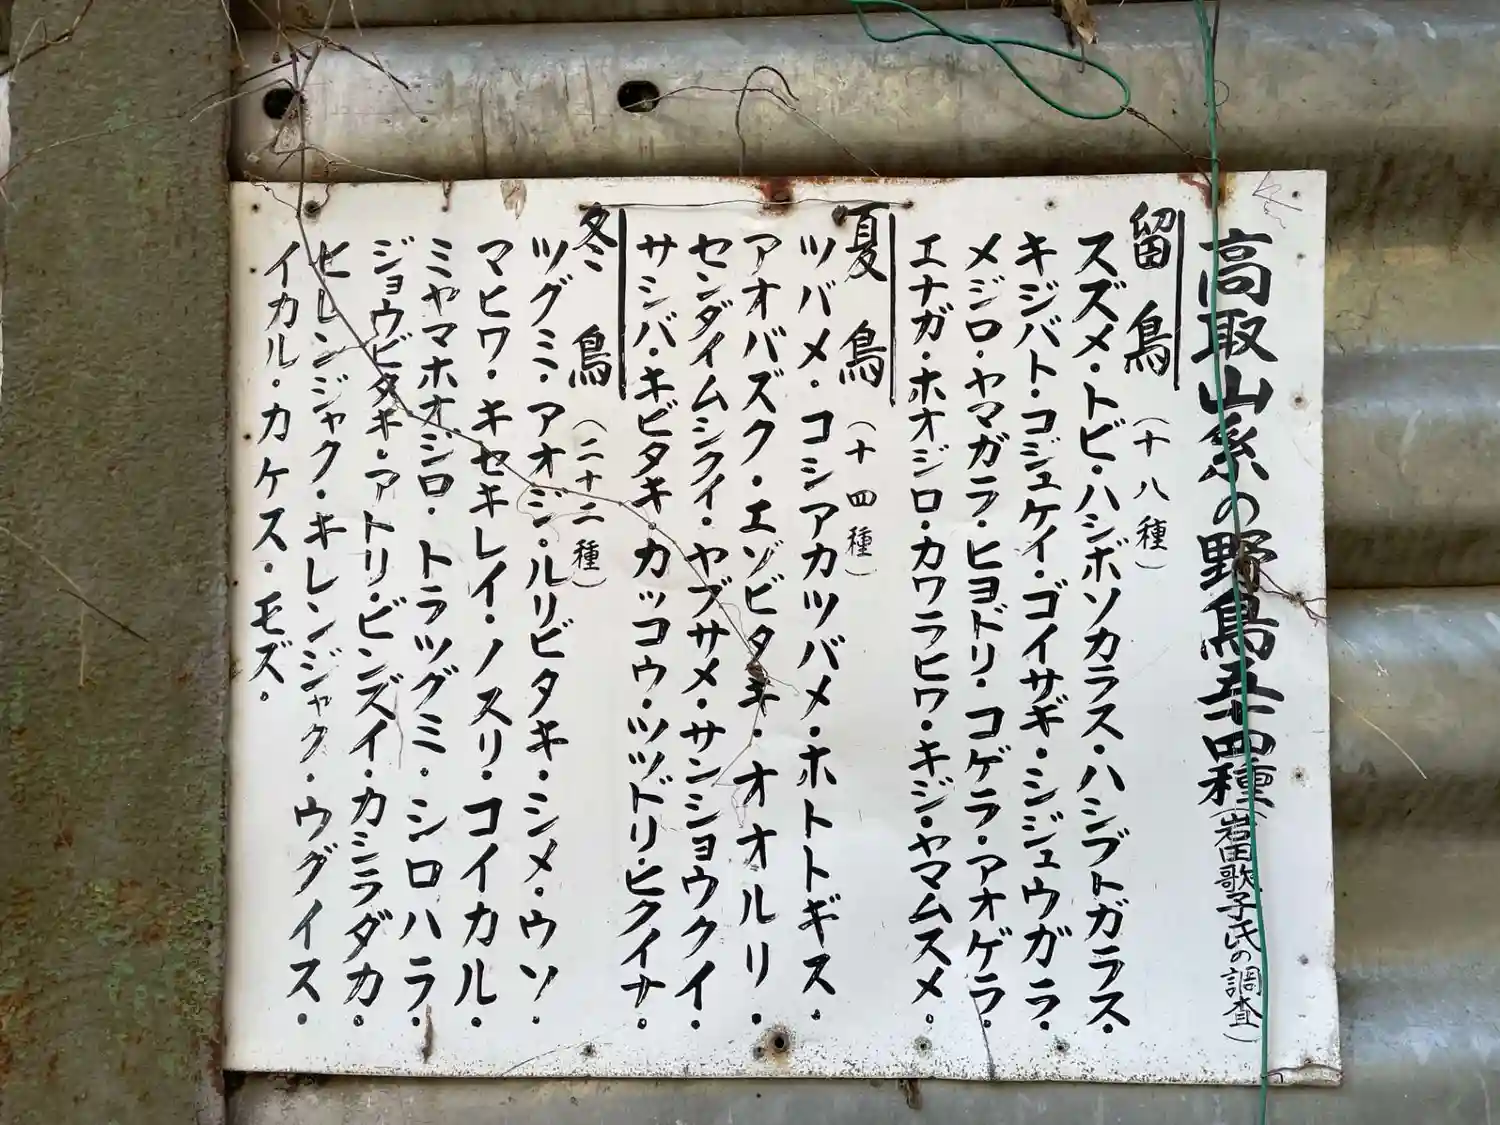 高取山系の野鳥五十四種(岩田歌子氏の調査)
留鳥(十八種)
スズメ・トビ・ハシボソカラス・ハシブトガラス・
キジバト・コジュケイ・ゴイサギ・シジュウガラ・
メジロ・ヤマガラ・ヒヨドリ・コゲラ・アオゲラ・
エナガ・ホオジロ・カワラヒワ・キジ・ヤマムスメ。
夏鳥(十四種)
ツバメ・コシアカツバメ・ホトトギス・
アオバズク・エゾビタキ・オオルリ・
センダイムシクイ・ヤブサメ・サンショウクイ・
サシバ・キビタキ・カッコウ・ツツドリ・ヒクイナ。
冬鳥(二十二種)
ツグミ・アオジ・ルリビタキ・シメ・ウソ・
マヒワ・キセキレイ・ノスリ・コイカル・
ミヤマホオジロ・トラツグミ・シロハラ・
ジョウビタキ・アトリ・ビンズイ・カニラダカ・
ヒレンジャク・キレンジャク・ウグイス・
イカル・カケス・モズ。